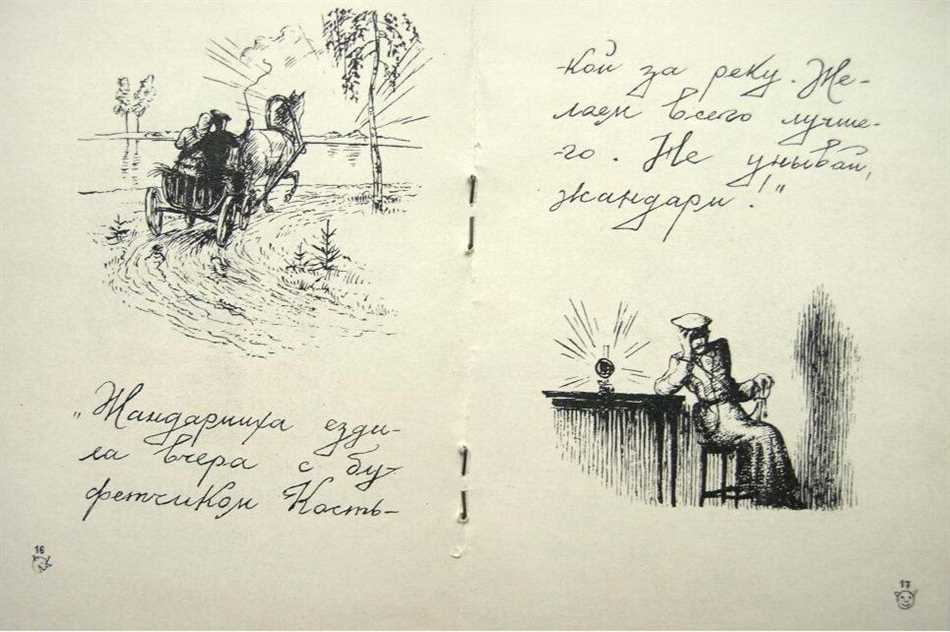 „Жандармиха езди-
ла вчера с бу-
фетчиком Кость-
16
-кой за реку. Же-
лаем всего лучше-
-го. Не унывай,
жандарм!"
17